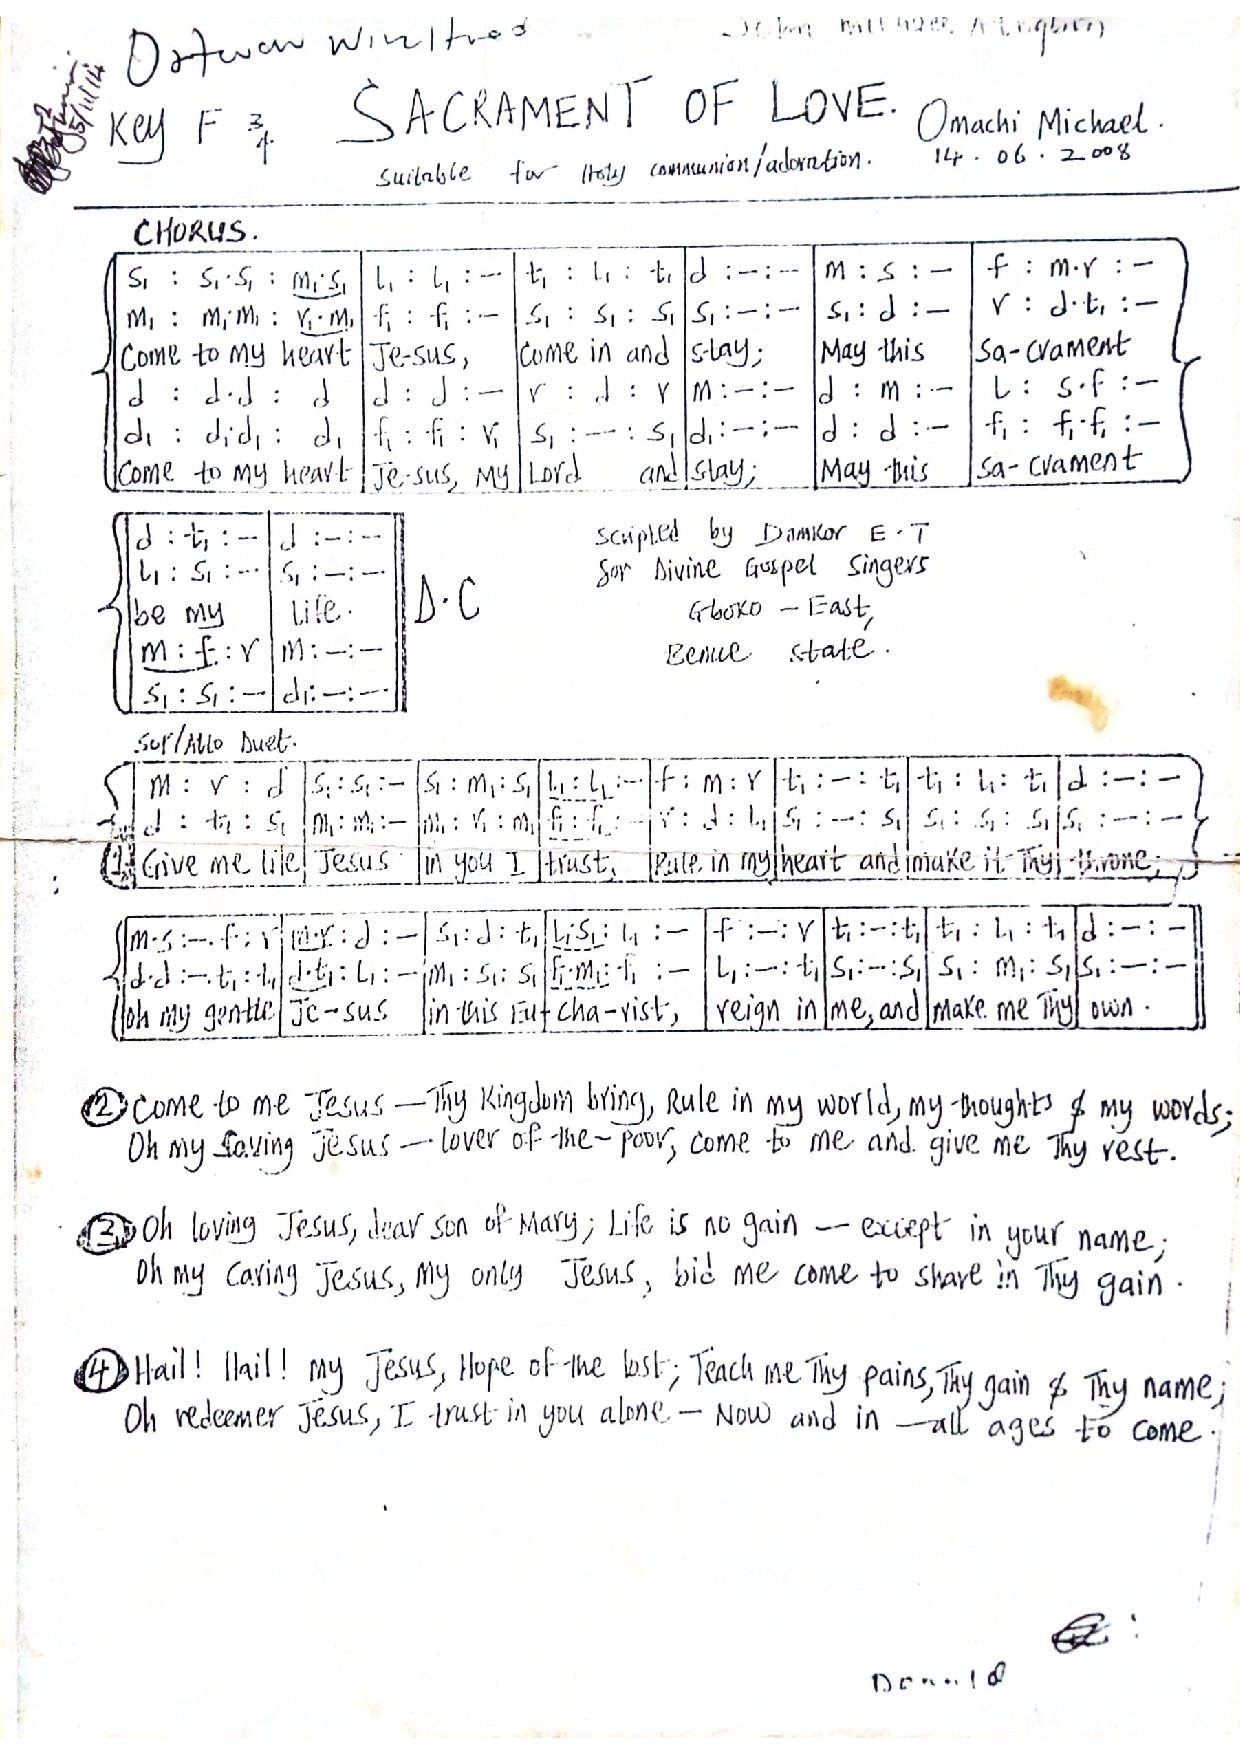 Key F 3/4 SACRAMENT OF LOVE. Omachi Michael.
14.06.2008
Suitable for Holy communion/adoration.
5/11/14
CHORUS.
s₁ : s₁.s₁ : m₁.s₁ | l₁ : l₁ :— | t₁ : l₁ : t₁ | d :—:— | m : s :— | f : m.r :—
m₁ : m₁.m₁ : r₁.m₁ | f₁ : f₁ :— | s₁ : s₁ : s₁ | s₁ :—:— | s₁ : d :— | r : d.t₁ :—
Come to my heart | Je-sus, | Come in and | stay; | May this | Sa-crament
d : d.d : d | d : d :— | r : d : r | m :—:— | d : m :— | l : s.f :—
d₁ : d₁.d₁ : d₁ | f₁ : f₁ : r₁ | s₁ :— : s₁ | d₁ :—:— | d : d :— | f₁ : f₁.f₁ :—
Come to my heart | Je-sus, My | Lord and | stay; | May this | Sa-crament
d : t₁ :— | d :—:—
l₁ : s₁ :— | s₁ :—:—
be my | life.
m : f : r | m :—:—
s₁ : s₁ :— | d₁ :—:—
D.C
Scripted by Damkor E.T
for Divine Gospel Singers
Gboko – East,
Benue state.
Sop/Alto Duet.
m : r : d | s₁ : s₁ :— | s₁ : m₁ : s₁ | l₁ : l₁ :— | f : m : r | t₁ :— : t₁ | t₁ : l₁ : t₁ | d :—:—
d : t₁ : s₁ | m₁ : m₁ :— | m₁ : r₁ : m₁ | f₁ : f₁ :— | r : d : l₁ | s₁ :— : s₁ | s₁ : s₁ : s₁ | s₁ :—:—
(1) Give me life | Jesus | in you I | trust, | Rule in my | heart and | make it Thy | throne;
m.s :—.f : r | m.r : d :— | s₁ : d : t₁ | l₁.s₁ : l₁ :— | f :— : r | t₁ :— : t₁ | t₁ : l₁ : t₁ | d :—:—
d.d :—.t₁ : t₁ | d.t₁ : l₁ :— | m₁ : s₁ : s₁ | f₁.m₁ : f₁ :— | l₁ :— : t₁ | s₁ :— : s₁ | s₁ : m₁ : s₁ | s₁ :—:—
Oh my gentle | Je-sus | in this Eu- | cha-rist, | reign in | me, and | make me Thy | own.
(2) Come to me Jesus — Thy Kingdom bring, Rule in my world, my thoughts & my words;
Oh my Saving Jesus — lover of the – poor, come to me and give me Thy rest.
(3) Oh loving Jesus, dear son of Mary; Life is no gain — except in your name;
Oh my Caring Jesus, My only Jesus, bid me come to share in Thy gain.
(4) Hail! Hail! my Jesus, Hope of the lost; Teach me Thy pains, Thy gain & Thy name;
Oh redeemer Jesus, I trust in you alone — Now and in — all ages to come.
Donald